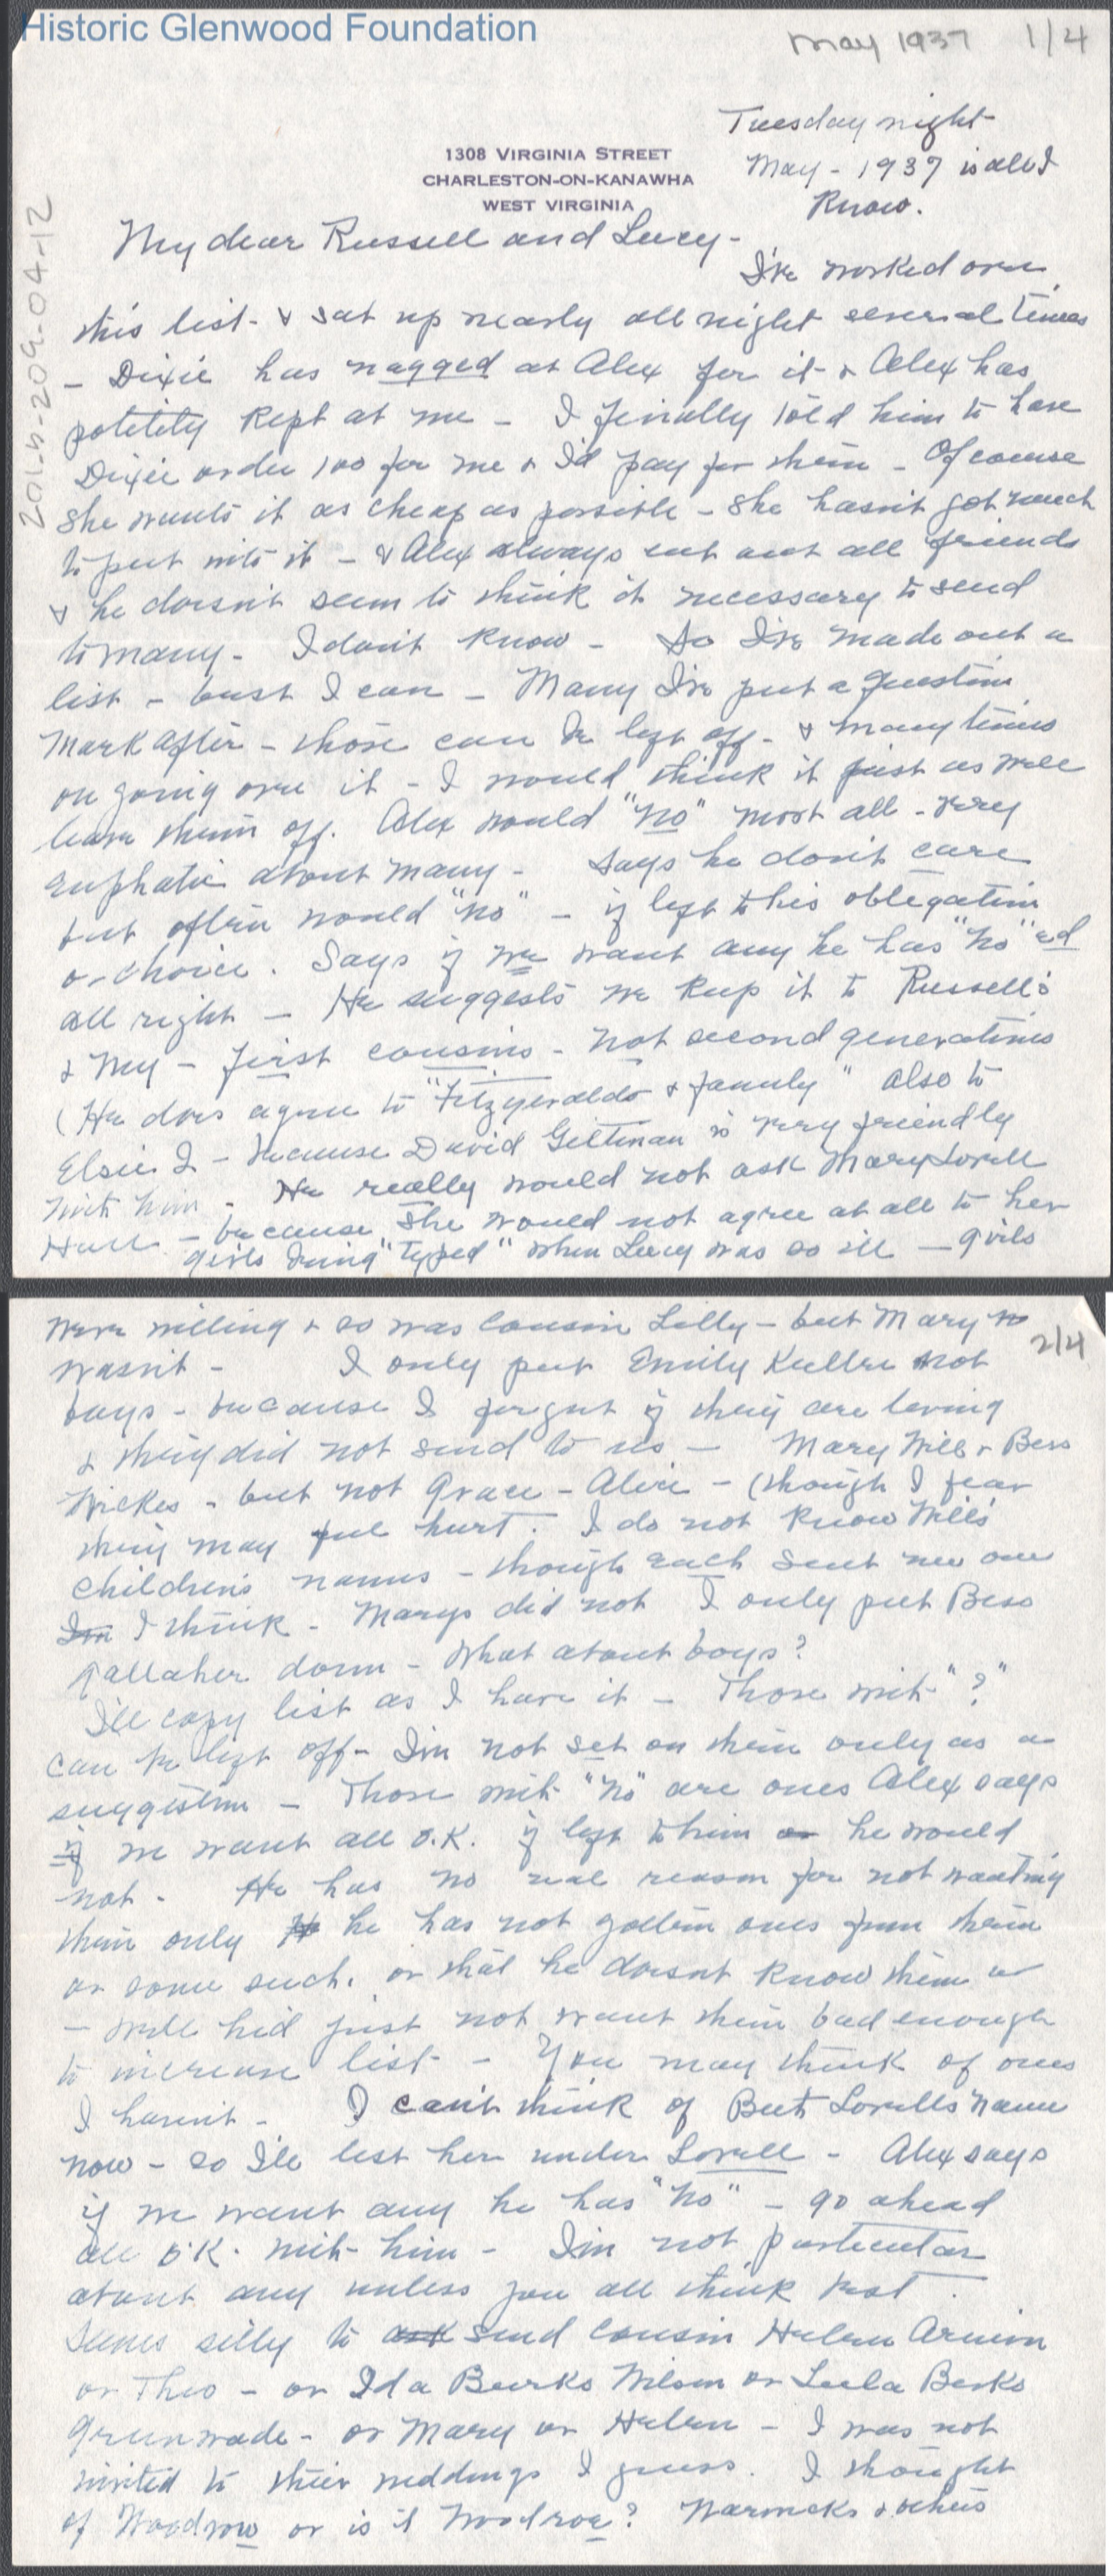 Historic Glenwood Foundation
May 1937 1/4
Tuesday night
May - 1937 is all I
Know.
1308 VIRGINIA STREET
CHARLESTON-ON-KANAWHA
WEST VIRGINIA
My dear Russell and Lucy -
I've worked over
this list - & sat up nearly all night several times
- Dixie has nagged at Alex for it - & Alex has
politity kept at me - I finally told him to have
Dixie order 100 for me & I'd pay for them - Of course
she wants it as cheap as possible - she hasn't got much
to put into it - & Alex always cut out all friends
& he doesn't seem to think it necessary to send
to many - I don't know - So I've made out a
list - best I can - Many I've put a question
mark after - those can be left off - & many times
on going over it - I would think it just as well
leave them off. Alex would "no" most all - very
emphatic about many - Says he don't care
but often would "no" - if left to his obligation
or choice. Says if we want any he has "no"ed
all right - He suggests we keep it to Russell's
& my - first cousins - not second generations
(He does agree to "Fitzgeralds & family" also to
Elsie Q - because David Giltinan is very friendly
with him - He really would not ask Mary Lovell
Hull - because she would not agree at all to her
girls being "typed" when Lucy was so ill - girls
2/4
were willing & so was Cousin Lilly - but Mary
wasn't - I only put Emily Keller not
boys - because I forgot if they are living
& they did not send to us - Mary Will & Bess
Wickes - but not Grace - Alice - (though I fear
they may feel hurt. I do not know Will's
children's names - though each sent me one
Im I think. Marys did not I only put Bess
Gallaher down - What about boys?
I'll copy list as I have it - Those with "?"
can be left off - I'm not set on them only as a
suggestion - Those with "No" are ones Alex says
if we want all O.K. if left to him or he would
not - He has no real reason for not wanting
them only He he has not gotten ones from them
or some such. or that he doesn't know them or
- well he'd just not want them bad enough
to increase list - You may think of ones
I haven't - I can't think of Bert Lovells name
now - so I'll list her under Lovell - Alex says
if we want any he has "No" - go ahead
all O.K. with him - I'm not particular
about any unless you all think best.
Seems silly to ask send Cousin Helen
or Theo - or Ida Burks Wilson or Lula Berks
Greenwade - or Mary or Helen - I was not
invited to their weddings I guess. I thought
of Woodrow or is it Woodroe? Warwicks & others
2015-209-04-12